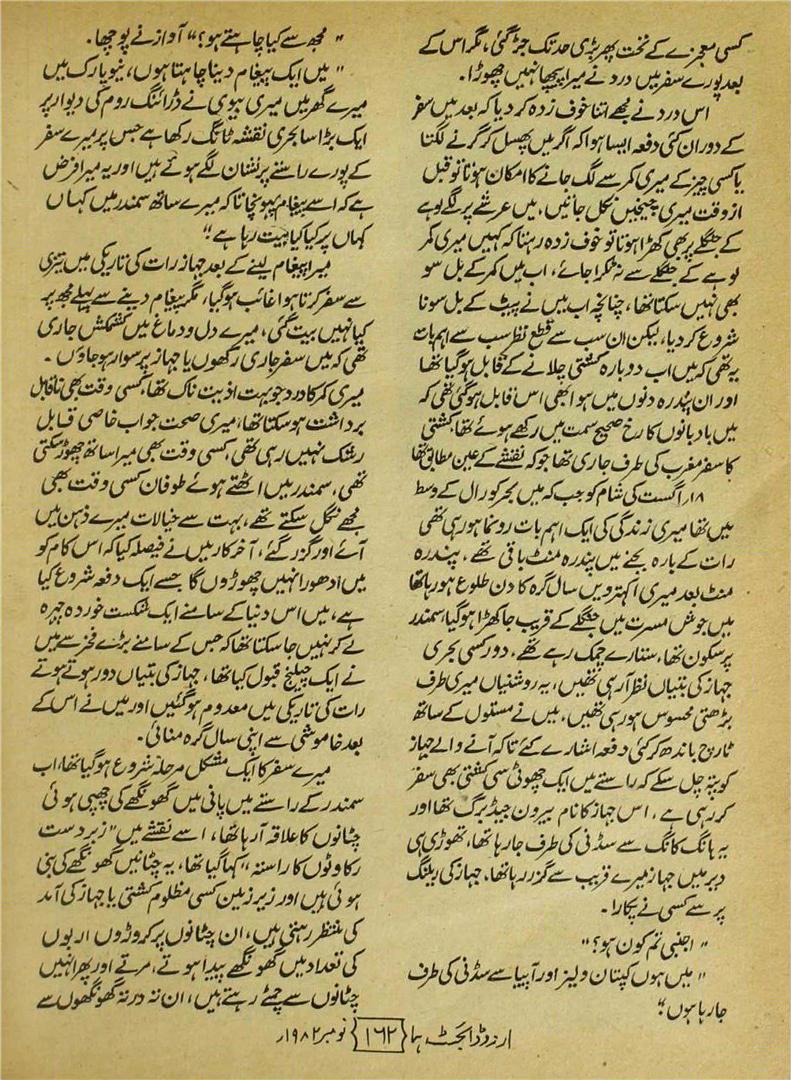 کسی معجزے کے تحت پھر بڑی حد تک جڑ گئی، مگر اس کے
بعد پورے سفر میں درد نے میرا پیچھا نہیں چھوڑا۔
اس درد نے مجھے اتنا خوف زدہ کر دیا کہ بعد میں سفر
کے دوران کئی دفعہ ایسا ہوا کہ اگر میں پھسل کر گرنے لگتا
یا کسی چیز کے میری کمر سے لگ جانے کا امکان ہوتا تو قبل
از وقت میری چیخیں نکل جاتیں، میں عرشے پر لگے لوہے
کے جنگلے پر بھی کھڑا ہوتا تو خوف زدہ رہتا کہ کہیں میری کمر
لوہے کے جنگلے سے نہ ٹکرا جائے، اب میں کمر کے بل سو
بھی نہیں سکتا تھا، چنانچہ اب میں نے پیٹ کے بل سونا
شروع کر دیا، لیکن ان سب سے قطع نظر سب سے اہم بات
یہ تھی کہ میں اب دوبارہ کشتی چلانے کے قابل ہو گیا تھا
اور ان پندرہ دنوں میں ہوا بھی اس قابل ہو گئی تھی کہ
میں بادبانوں کا رخ صحیح سمت میں رکھے ہوئے تھا، کشتی
کا سفر مغرب کی طرف جاری تھا جو کہ نقشے کے عین مطابق تھا
۱۸؍ اگست کی شام کو جب کہ میں بحر کورال کے وسط
میں تھا میری زندگی کی ایک اہم بات رونما ہو رہی تھی
رات کے بارہ بجنے میں پندرہ منٹ باقی تھے، پندرہ
منٹ بعد میری اکہترویں سال گرہ کا دن طلوع ہو رہا تھا
میں جوش مسرت میں جنگلے کے قریب جا کھڑا ہو گیا، سمندر
پرسکون تھا، ستارے چمک رہے تھے، دور کسی بحری
جہاز کی بتیاں نظر آ رہی تھیں، یہ روشنیاں میری طرف
بڑھتی محسوس ہو رہی تھیں، میں نے مستول کے ساتھ
ٹارچ باندھ کر کئی دفعہ اشارے کئے تاکہ آنے والے جہاز
کو پتہ چل سکے کہ راستے میں ایک چھوٹی سی کشتی بھی سفر
کر رہی ہے، اس جہاز کا نام بیرون جیڈ برگ تھا اور
یہ ہانگ کانگ سے سڈنی کی طرف جا رہا تھا، تھوڑی ہی
دیر میں جہاز میرے قریب سے گزر رہا تھا، جہاز کی ریلنگ
پر سے کسی نے پکارا۔
"اجنبی تم کون ہو؟"
"میں ہوں کپتان ولیز اور آپیا سے سڈنی کی طرف
جا رہا ہوں"
"مجھ سے کیا چاہتے ہو؟" آواز نے پوچھا۔
"میں ایک پیغام دینا چاہتا ہوں، نیویارک میں
میرے گھر میں میری بیوی نے ڈرائنگ روم کی دیوار پر
ایک بڑا سا بحری نقشہ ٹانگ رکھا ہے جس پر میرے سفر
کے پورے راستے پر نشان لگے ہوئے ہیں اور یہ میرا فرض
ہے کہ اسے پیغام پہونچاتا کہ میرے ساتھ سمندر میں کہاں
کہاں پر کیا کیا بیت رہا ہے"
میرا پیغام لینے کے بعد جہاز رات کی تاریکی میں تیزی
سے سفر کرتا ہوا غائب ہو گیا، مگر پیغام دینے سے پہلے مجھ پر
کیا نہیں بیت گئی، میرے دل و دماغ میں کشمکش جاری
تھی کہ میں سفر جاری رکھوں یا جہاز پر سوار ہو جاؤں۔
میری کمر کا درد جو بہت اذیت ناک تھا، کسی وقت بھی ناقابل
برداشت ہو سکتا تھا، میری صحت جو اب خاصی قابل
رشک نہیں رہی تھی، کسی وقت بھی میرا ساتھ چھوڑ سکتی
تھی، سمندر میں اٹھتے ہوئے طوفان کسی وقت بھی
مجھے نگل سکتے تھے، بہت سے خیالات میرے ذہن میں
آئے اور گزر گئے، آخر کار میں نے فیصلہ کیا کہ اس کام کو
میں ادھورا نہیں چھوڑوں گا جسے ایک دفعہ شروع کیا
ہے، میں اس دنیا کے سامنے ایک شکست خوردہ چہرہ
لے کر نہیں جا سکتا تھا کہ جس کے سامنے بڑے فخر سے میں
نے ایک چیلنج قبول کیا تھا، جہاز کی بتیاں دور ہوتے ہوتے
رات کی تاریکی میں معدوم ہو گئیں اور میں نے اس کے
بعد خاموشی سے اپنی سال گرہ منائی۔
میرے سفر کا ایک مشکل مرحلہ شروع ہو گیا تھا، اب
سمندر کے راستے میں پانی میں گھونگھے کی چھپی ہوئی
چٹانوں کا علاقہ آ رہا تھا، اسے نقشے میں "زبردست
رکاوٹوں کا راستہ" کہا گیا تھا، یہ چٹانیں گھونگھے کی بنی
ہوئی ہیں اور زیر زمین کسی مظلوم کشتی یا جہاز کی آمد
کی منتظر رہتی ہیں، ان چٹانوں پر کروڑوں اربوں
کی تعداد میں گھونگھے پیدا ہوتے، مرتے اور پھر انہیں
چٹانوں سے چمٹے رہتے ہیں، ان تہ در تہ گھونگھوں سے
اردو ڈائجسٹ ہما {۱۶۲} نومبر ۱۹۸۲ء